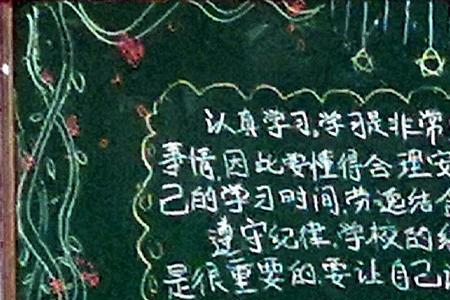 认真学习,学习是非常
事情,因此要懂得合理安
己的学习时间,劳逸结合
遵守纪律,学校的纪
是很重要的,要让自己